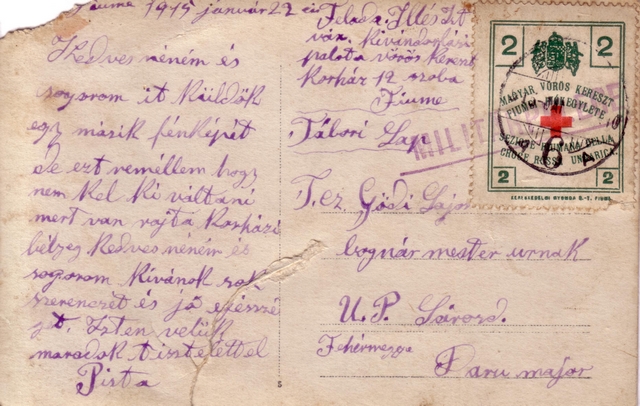 Fiume 1915 január 22 én
Kedves néném és
sogorom it Küldök
egy másik fénképét
de ezt reméllem hogy
nem kel ki váltani
mert van rajta Korházi
bélyeg Kedves néném és
sogorom Kivánok sok
szerencét és jó egéssé
gt. Isten velük
maradok tisztelettel
Pista
Felada. Illés
Kivándorlási
palota vörös Kereszt
Korház 12 szoba
Fiume
Tábori Lap
T.cz. Gödi Lajos
bognár mester urnak
U.P. Sárosd.
Fehérmegye
Daru major
2 2
MAGYAR VÖRÖS KERESZT
FIUMEI EGYLETE
SEZIONE FIUMANA DELLA
CROCE ROSSA UNGARICA
2 2
KERESKEDELMI NYOMDA R.-T. FIUME
MILIT